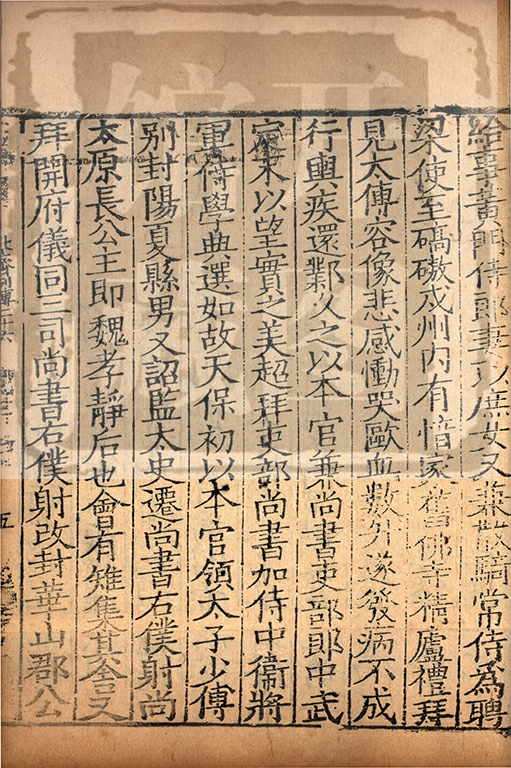 給事黃門侍郎妻以庶女又兼散騎常侍為聘
梁使至碻磝戍州內有愔家舊佛寺精廬禮拜
見太傅容像悲感慟哭歐血數外遂發病不成
行輿疾還鄴久之以本官兼尚書吏部郎中武
定末以望實之美超拜吏部尚書加侍中衞將
軍侍學典選如故天保初以本官領太子少傅
別封陽夏縣男又詔監太史遷尚書右僕射尚
太原長公主即魏孝靜后也會有雉集其舍又
拜開府儀同三司尚書右僕射改封華山郡公
五